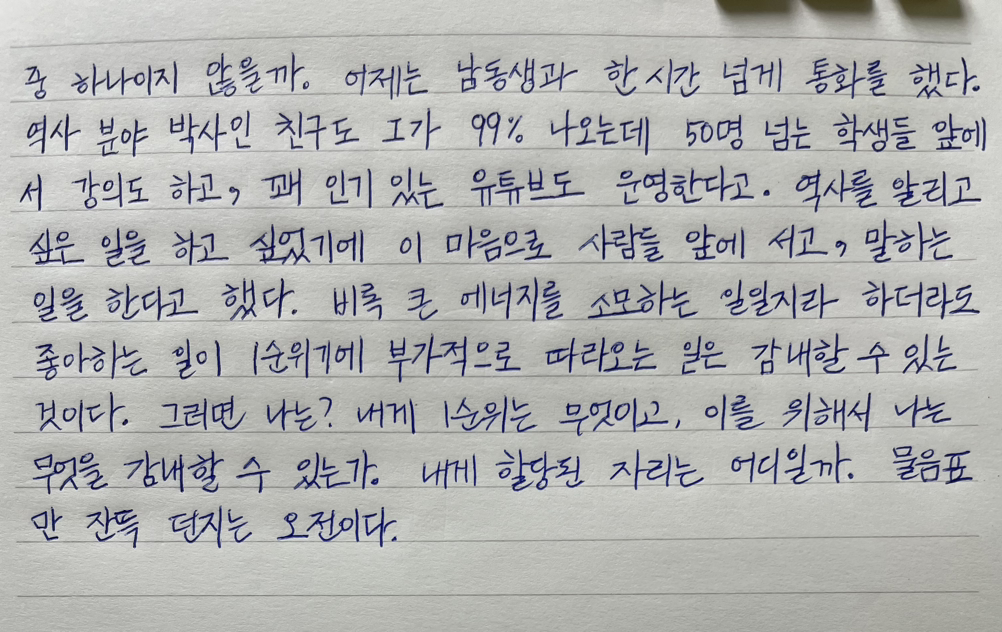 중 하나이지 않을까. 어제는 남동생과 한 시간 넘게 통화를 했다.
역사 분야 박사인 친구도 I가 99% 나오는데 50명 넘는 학생들 앞에
서 강의도 하고, 꽤 인기 있는 유튜브도 운영한다고. 역사를 알리고
싶은 일을 하고 싶었기에 이 마음으로 사람들 앞에 서고, 말하는
일을 한다고 했다. 비록 큰 에너지를 소모하는 일일지라 하더라도
좋아하는 일이 1순위기에 부가적으로 따라오는 일은 감내할 수 있는
것이다. 그러면 나는? 내게 1순위는 무엇이고, 이를 위해서 나는
무엇을 감내할 수 있는가. 내게 할당된 자리는 어디일까. 물음표
만 잔뜩 던지는 오전이다.